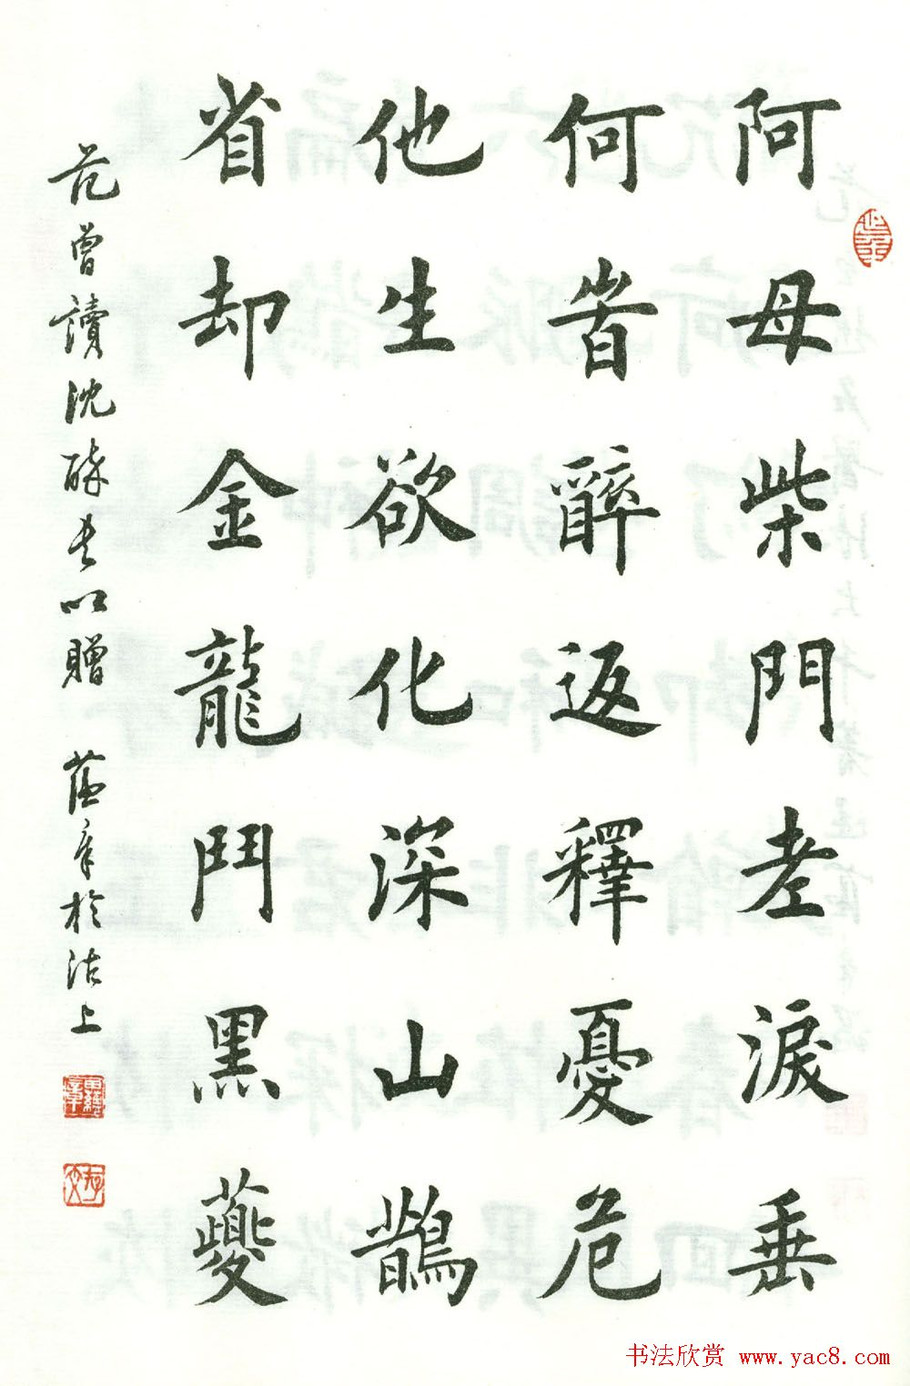 阿母柴門老淚垂
何旹辭返釋憂危
他生欲化深山鵲
省却金龍鬥黑夔
范曾讀沈醉書以贈 蘊章於沽上
田蘊章
书法欣赏 www.yac8.com